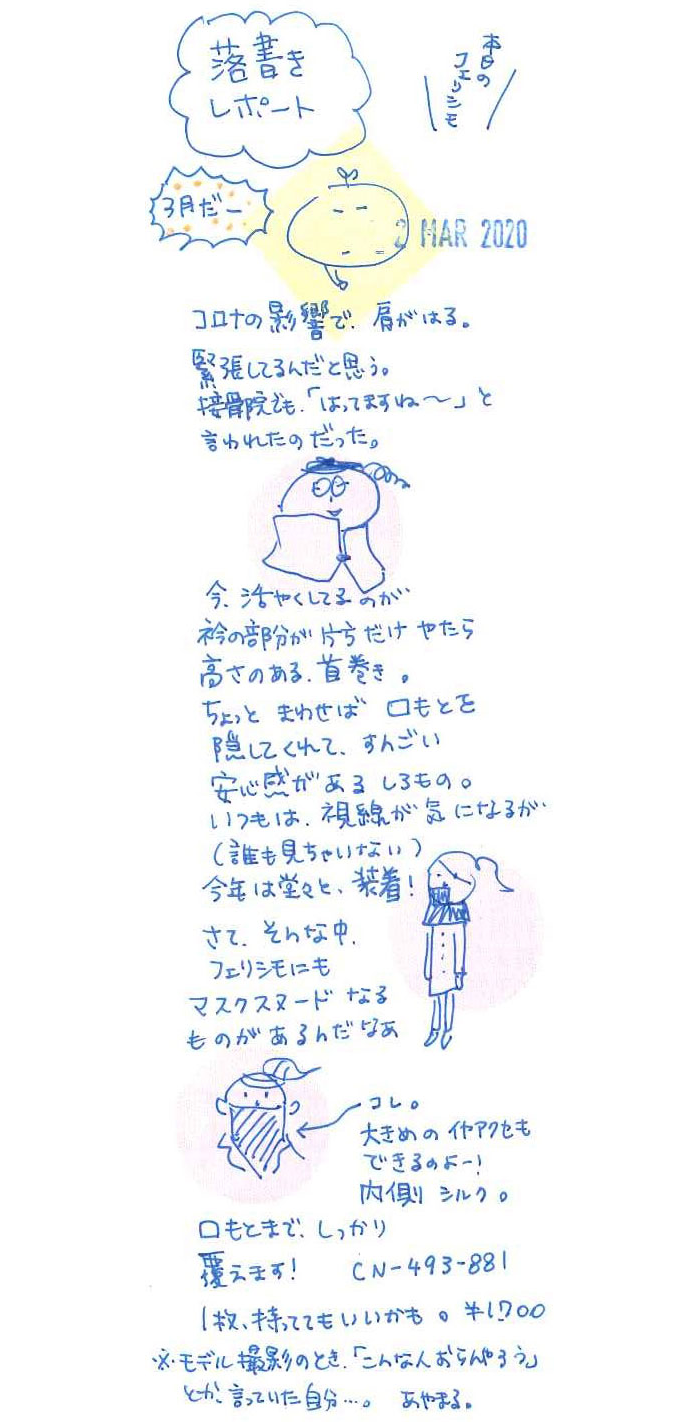 落書き
レポート
本日の
フェリシモ
3月だー
2 MAR 2020
コロナの影響で、肩がはる。
緊張してるんだと思う。
接骨院でも、「はってますね〜」と
言われたのだった。
今、活やくしてるのが
衿の部分が片方だけやたら
高さのある、首巻き。
ちょっと まわせば 口もとを
隠してくれて、すんごい
安心感がある しろもの。
いつもは、視線が気になるが
(誰も見ちゃいない)
今年は堂々と、装着!
さて、そんな中、
フェリシモにも
マスクスヌード なる
ものがあるんだなあ
コレ。
大きめの イヤアクセも
できるのよー!
内側 シルク。
口もとまで、しっかり
覆えます! CN-493-881
1枚、持っててもいいかも。¥1,700
※モデル撮影のとき、「こんな人おらんやろう」
とか、言っていた自分…。 あやまる。